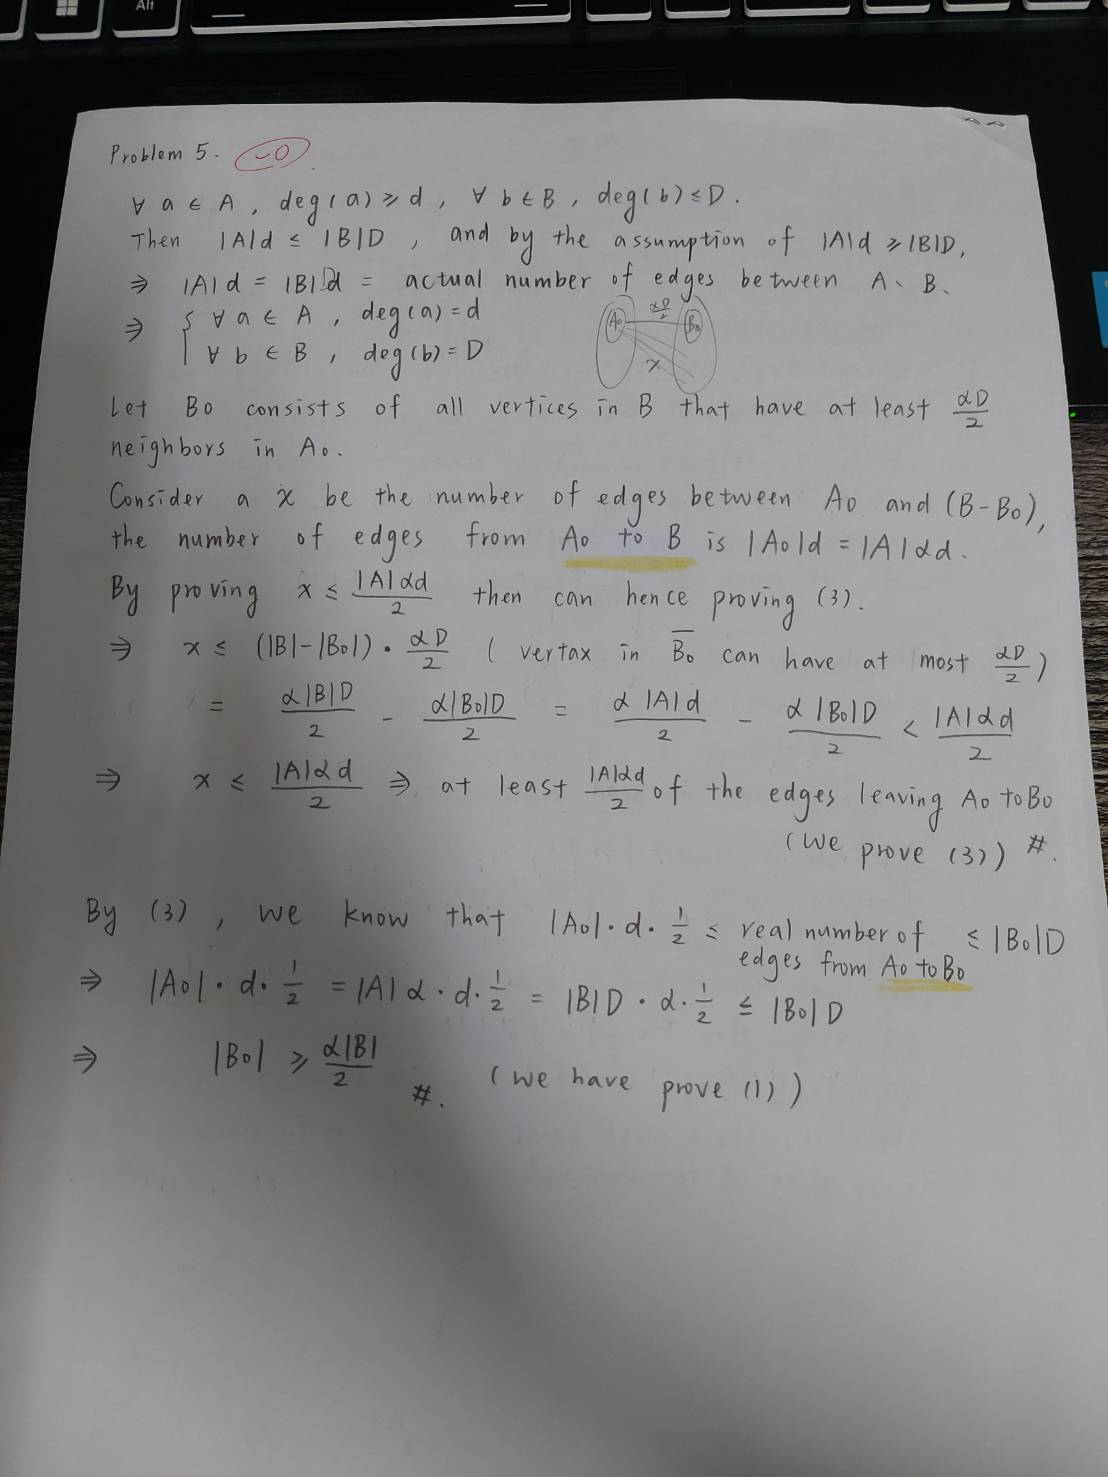 Alt
Problem 5. -0
∀ a ∈ A, deg(a) ≥ d, ∀ b ∈ B, deg(b) ≤ D.
Then |A|d ≤ |B|D, and by the assumption of |A|d ≥ |B|D,
⇒ |A|d = |B|D = actual number of edges between A、B、
⇒ { ∀ a ∈ A, deg(a) = d
∀ b ∈ B, deg(b) = D
A0 αD/2 B0
x
Let B0 consists of all vertices in B that have at least αD/2
neighbors in A0.
Consider a x be the number of edges between A0 and (B-B0),
the number of edges from A0 to B is |A0|d = |A|αd.
By proving x ≤ |A|αd/2 then can hence proving (3).
⇒ x ≤ (|B|-|B0|)·αD/2 ( vertax in B̅0 can have at most αD/2 )
= α|B|D/2 - α|B0|D/2 = α|A|d/2 - α|B0|D/2 < |A|αd/2
⇒ x ≤ |A|αd/2 ⇒ at least |A|αd/2 of the edges leaving A0 to B0
(We prove (3)) #.
By (3), we know that |A0|·d·1/2 ≤ real number of edges from A0 to B0 ≤ |B0|D
⇒ |A0|·d·1/2 = |A|α·d·1/2 = |B|D·α·1/2 ≤ |B0|D
⇒ |B0| ≥ α|B|/2 #. (we have prove (1))